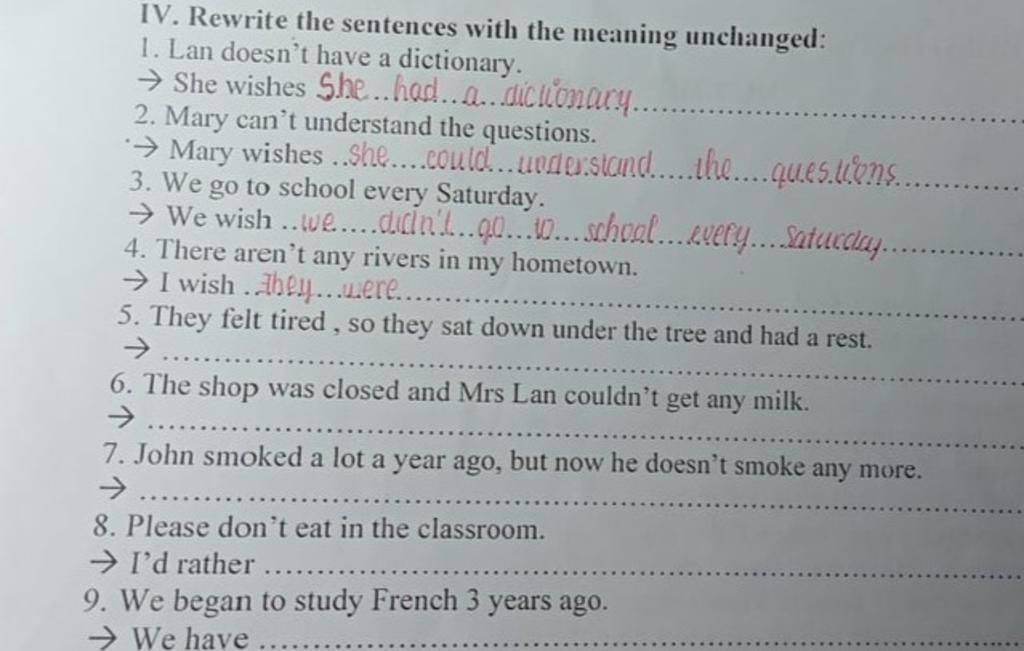 IV. Rewrite the sentences with the meaning unchanged:
1. Lan doesn't have a dictionary.
→ She wishes She..had..a..dictionary..............................
2. Mary can't understand the questions.
→ Mary wishes ..she....could...understand.....the....questions..............
3. We go to school every Saturday.
→ We wish ..we.....didn't..go...to...school...every....Saturday..............
4. There aren't any rivers in my hometown.
→ I wish ..they...were............................................................
5. They felt tired , so they sat down under the tree and had a rest.
→ ................................................................................
6. The shop was closed and Mrs Lan couldn't get any milk.
→ ................................................................................
7. John smoked a lot a year ago, but now he doesn't smoke any more.
→ ................................................................................
8. Please don't eat in the classroom.
→ I'd rather ......................................................................
9. We began to study French 3 years ago.
→ We have ......................................................................